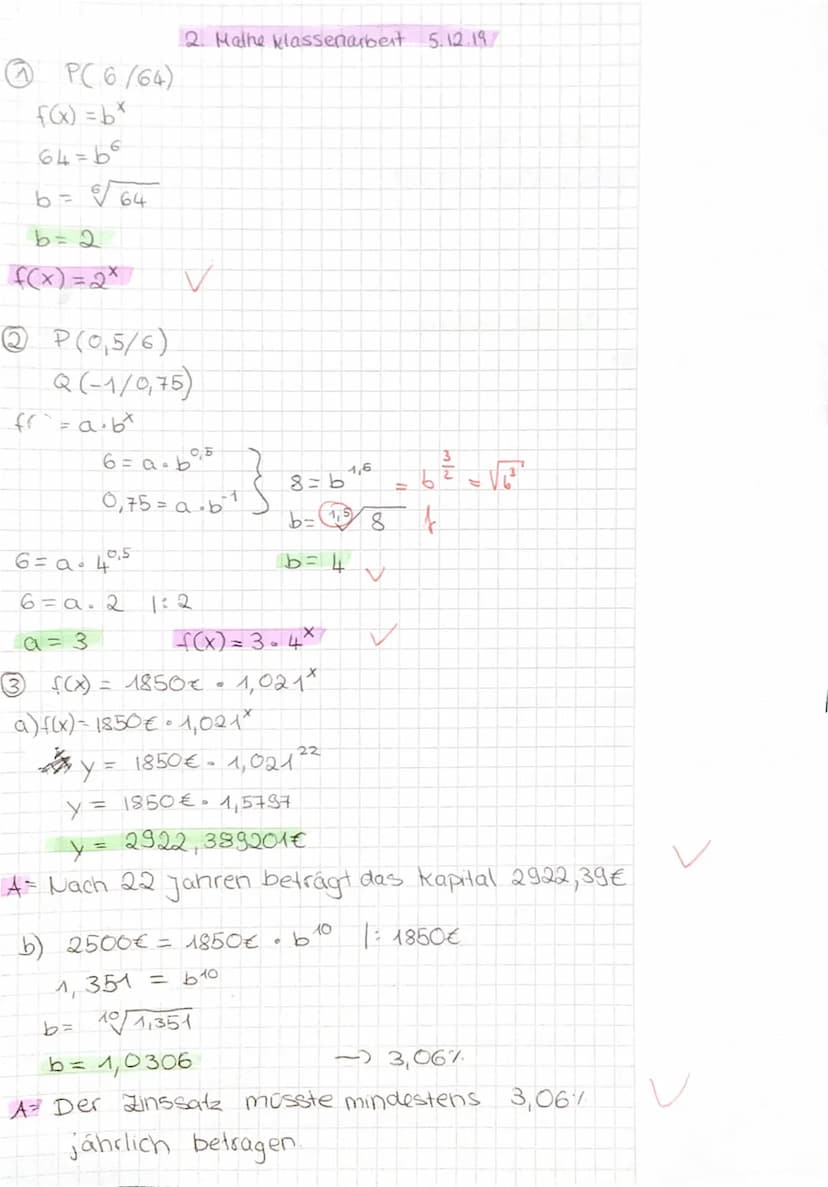 2. Mathe Klassenarbeit 5.12.19
① P(6/64)
f(x) = b^x
64 = b^6
b = ⁶√64
b = 2
f(x) = 2^x ✓
② P(0,5/6)
Q(-1/0,75)
f( = a·b^x
6 = a·b^0,5
0,75 = a·b^-1
} 8 = b^1,5 = b^(3/2) = √b³
b = 1,5√8 f
6 = a·4^0,5 b = 4 ✓
6 = a·2 |:2
a = 3 f(x) = 3·4^x ✓
③ f(x) = 1850€ · 1,021^x
a) f(x) = 1850€ · 1,021^x
y = 1850€ · 1,021^22
y = 1850€ · 1,5797
y = 2922,389201€
A= Nach 22 Jahren beträgt das Kapital 2922,39€ ✓
b) 2500€ = 1850€ · b^10 |: 1850€
1,351 = b^10
b = ¹⁰√1,351
b = 1,0306 → 3,06%
A= Der Zinssatz müsste mindestens 3,06% ✓
jährlich betragen.